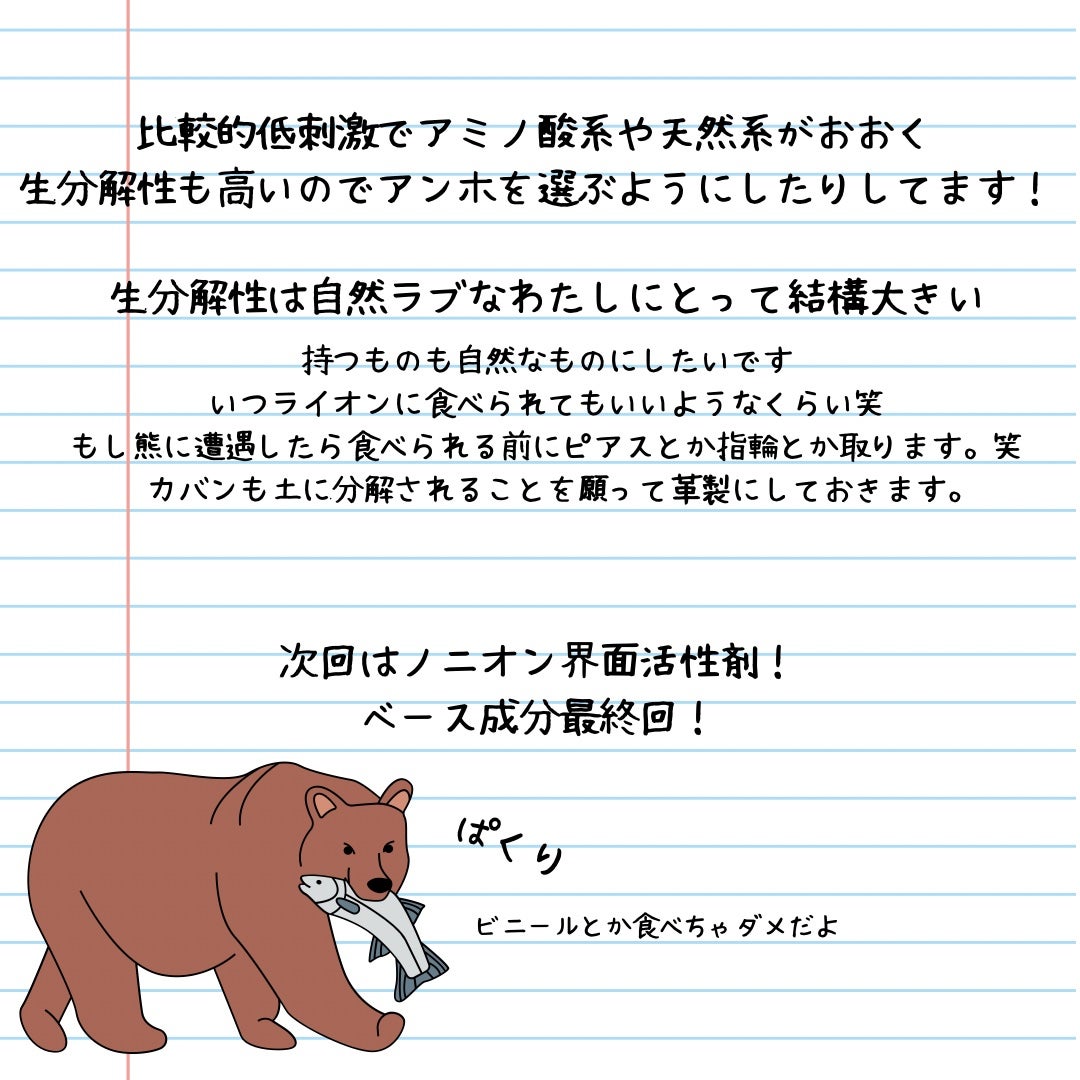 比較的低刺激でアミノ酸系や天然系がおおく
生分解性も高いのでアンホを選ぶようにしたりしてます！
生分解性は自然ラブなわたしにとって結構大きい
持つものも自然なものにしたいです
いつライオンに食べられてもいいようなくらい笑
もし熊に遭遇したら食べられる前にピアスとか指輪とか取ります。笑
カバンも土に分解されることを願って革製にしておきます。
次回はノニオン界面活性剤！
ベース成分最終回！
ぱくり
ビニールとか食べちゃダメだよ